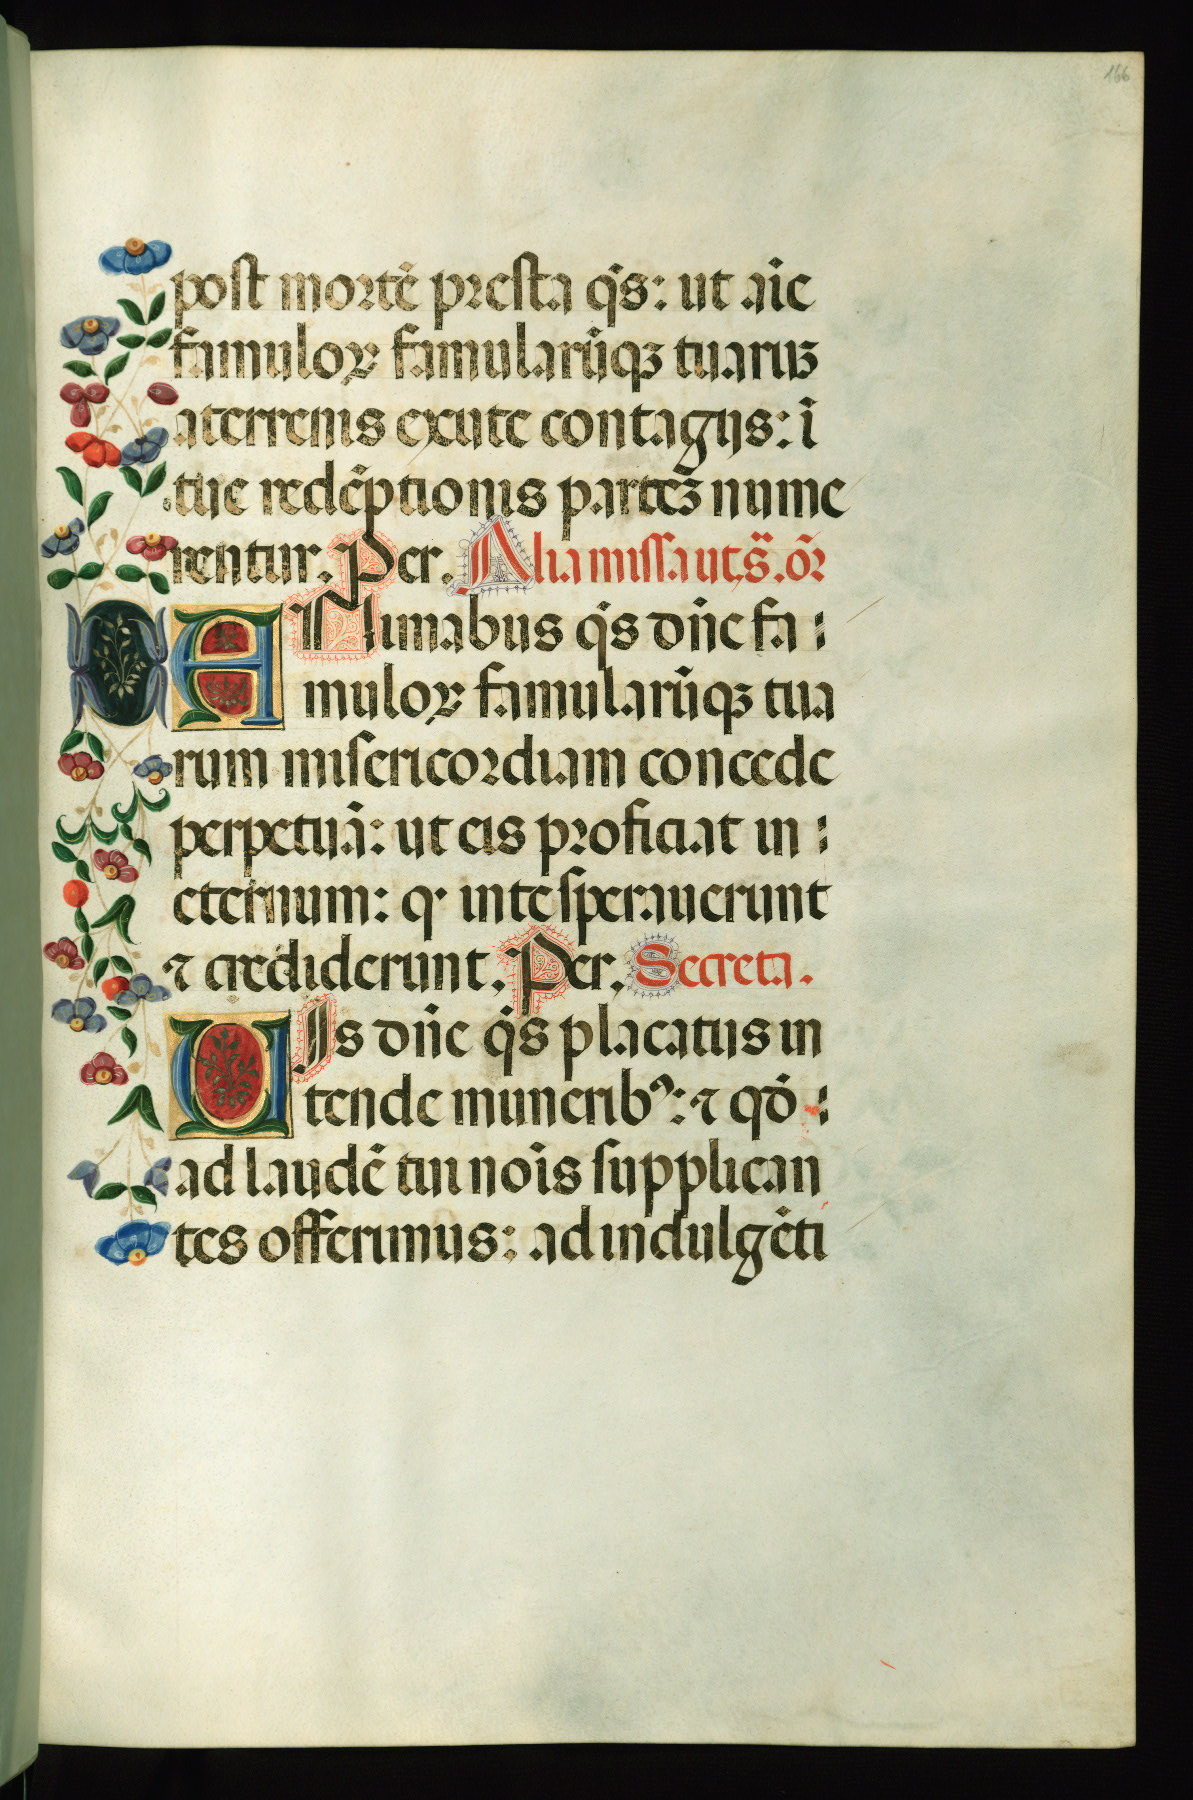 166
post mortē presta q̄s: ut aīe
famuloꝝ famularūqꝫ tuaruꝫ
a terrenis exute contagijs: ī
tue redēptionis partes nume
rentur. Per. Alia missa ut s̄. or̄
ANimabus q̄s dn̄e fa :
muloꝝ famularūqꝫ tua
rum misericordiam concede
perpetuā: ut eis proficiat in :
eternum: q͛ in te sperauerunt
⁊ crediderunt. Per. Secreta.
UIs dn̄e q̄s placatus in
tende munerib⁹: ⁊ qō :
ad laudē tui noīs supplican
tes offerimus: ad indulgēti